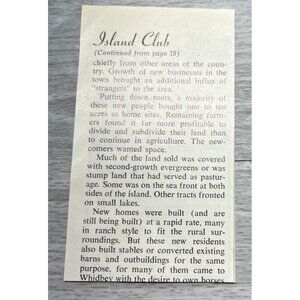 Island Club
(Continued from page 79)
chiefly from other areas of the coun-
try. Growth of new businesses in the
town brought an additional influx of
"strangers" to the area.
Putting down roots, a majority of
these new people bought one to ten
acres as home sites. Remaining farm-
ers found it far more profitable to
divide and subdivide their land than
to continue in agriculture. The new-
comers wanted space.
Much of the land sold was covered
with second-growth evergreens or was
stump land that had served as pastur-
age. Some was on the sea front at both
sides of the island. Other tracts fronted
on small lakes.
New homes were built (and are
still being built) at a rapid rate, many
in ranch style to fit the rural sur-
roundings. But these new residents
also built stables or converted existing
barns and outbuildings for the same
purpose, for many of them came to
Whidbey with the desire to own horses